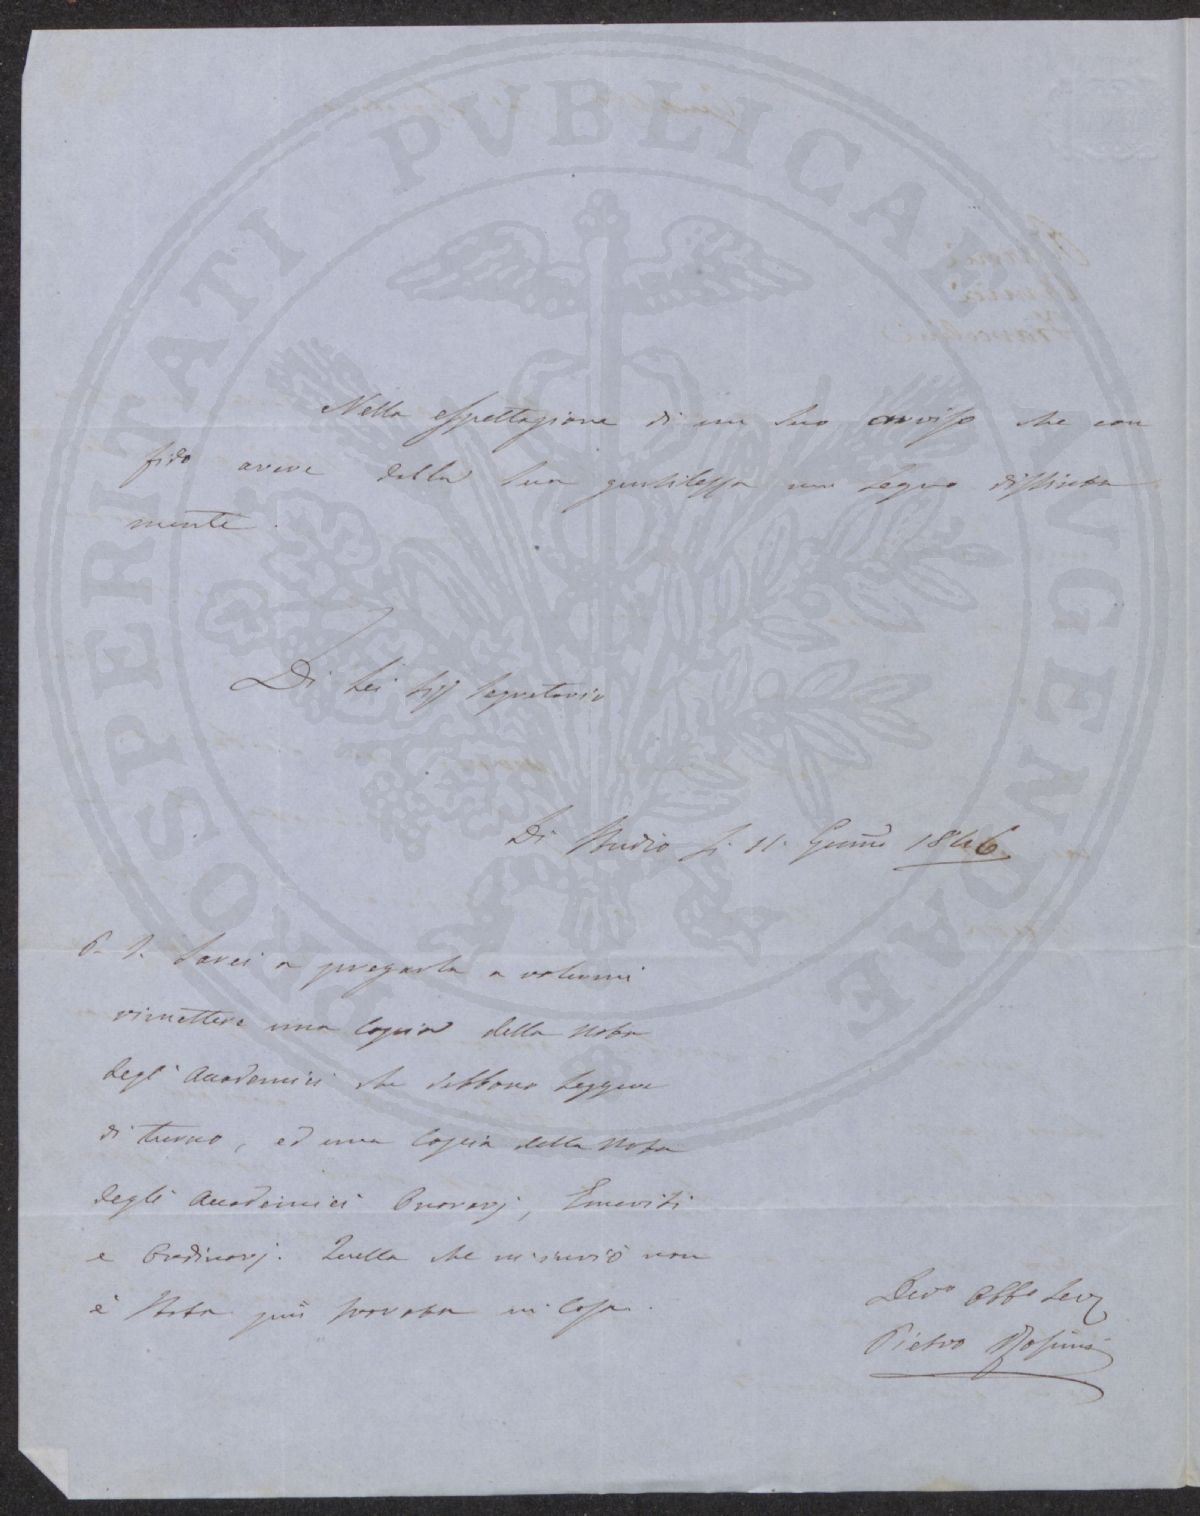 PROSPERITATI PVBLICAE AVGENDAE
Nella espettazione di un Suo avviso che con
fido avere dalla Sua gentilezza mi segno distinta
mente.
Di Lei Sig Segretario
Di Studio li 11. Genn 1846
P. S. Sarei a pregarla a volermi
rimettere una Copia della Nota
degli Accademici che debbono leggere
di turno, ed una Copia della Nota
degli Accademici Onorarj, Emeriti
e Ordinarj. Quella che m'inviò non
è stata più trovata in Casa.
Devo Obbo Serv
Pietro